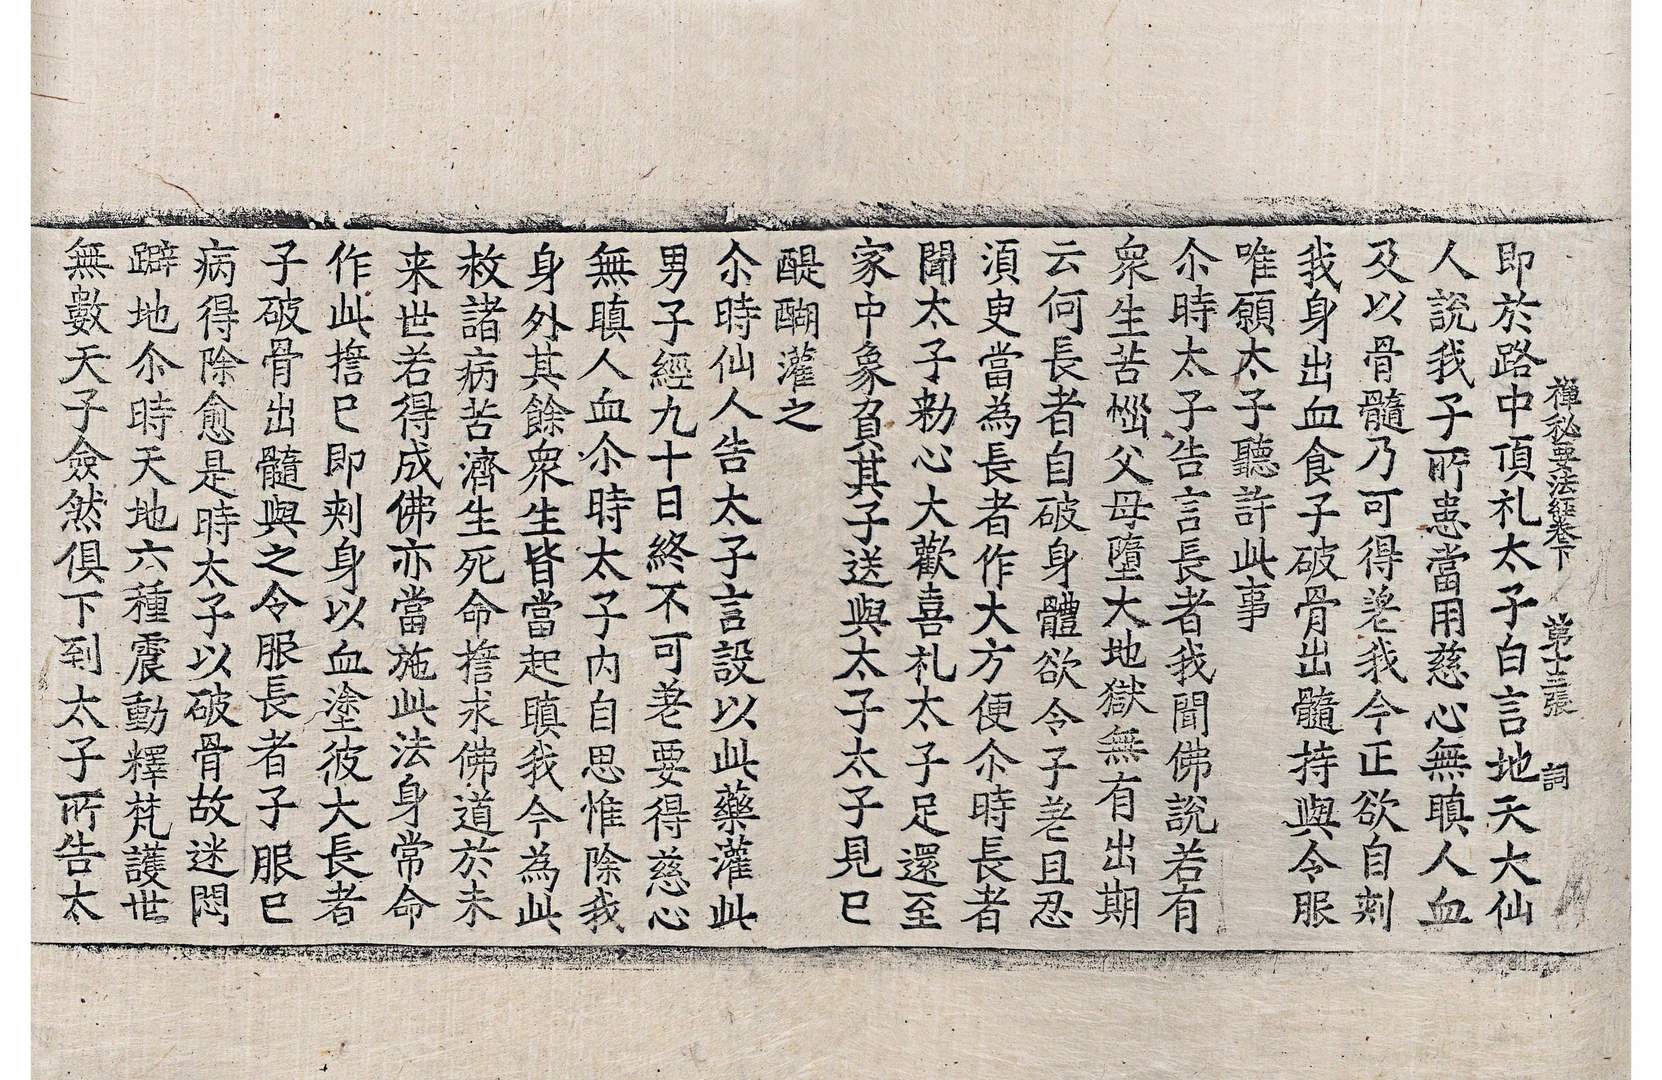 禪秘要法經卷下　第十三張　詞
即於路中頂礼太子白言地天大仙
人說我子所患當用慈心無瞋人血
及以骨髓乃可得差我今正欲自刺
我身出血食子破骨出髓持與令服
唯願太子聽許此事
尒時太子告言長者我聞佛說若有
衆生苦惱父母墮大地獄無有出期
云何長者自破身體欲令子差且忍
湏臾當為長者作大方便尒時長者
聞太子勑心大歡喜礼太子足還至
家中象負其子送與太子太子見已
醍醐灌之
尒時仙人告太子言設以此藥灌此
男子經九十日終不可差要得慈心
無瞋人血尒時太子内自思惟除我
身外其餘衆生皆當起瞋我今為此
救諸病苦濟生死命擔求佛道於未
来世若得成佛亦當施此法身常命
作此擔已即刺身以血塗彼大長者
子破骨出髓與之令服長者子服已
病得除愈是時太子以破骨故迷悶
躃地尒時天地六種震動釋梵護世
無數天子僉然俱下到太子所告太